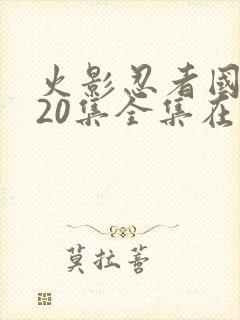 火影忍者國
20集全集在
莫拉菩